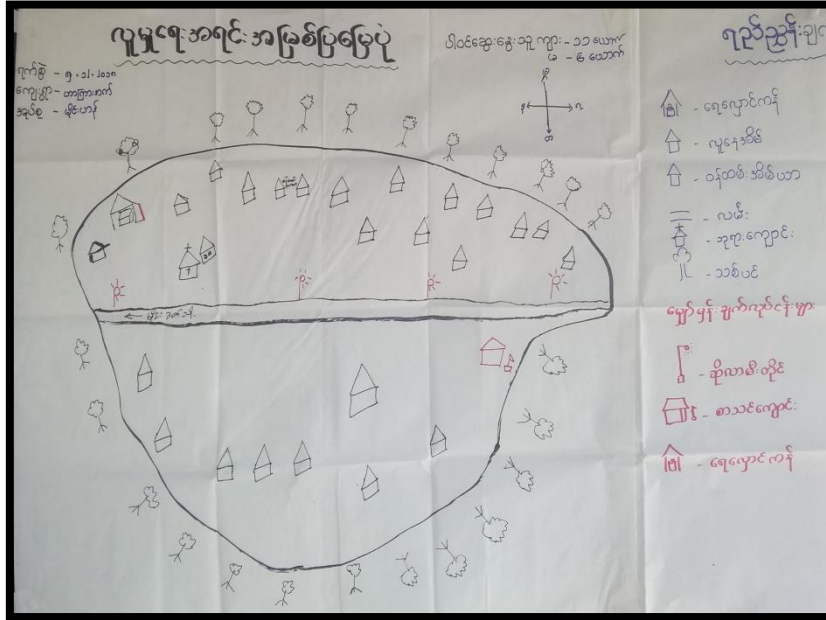 လူမှုရေးအရင်းအမြစ်ပြမြေပုံ
ပါဝင်ဆွေးနွေးသူ ကျား - ၁၁ ယောက်
မ - ၆ ယောက်
ရက်စွဲ -
ကျေးရွာ -
အုပ်စု -
ရည်ညွှန်းချက်
ရေလှောင်ကန်
လူနေအိမ်
ဝန်ထမ်းအိမ်ယာ
လမ်း
ဘုရားကျောင်း
သစ်ပင်
မျှော်မှန်းချက်လုပ်ငန်းများ
ဆိုလာမီးတိုင်
စာသင်ကျောင်း
ရေလှောင်ကန်